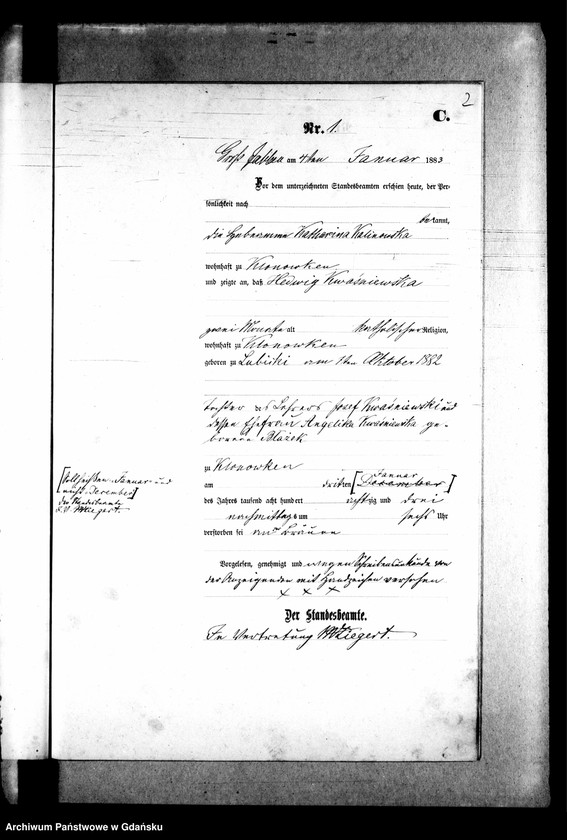 2
C.
Nr. 1.
Groß Jablau am 4ten Januar 1883
Vor dem unterzeichneten Standesbeamten erschien heute, der Per-
sönlichkeit nach
bekannt,
die Hebeamme Katharina Kalinowska
wohnhaft zu Klonowken
und zeigte an, daß Hedwig Kwaśniewska
zwei Monate alt katholischer Religion,
wohnhaft zu Klonowken
geboren zu Lubicki am 1ten Oktober 1882
Tochter des Lehrers Josef Kwaśniewski und
dessen Ehefrau Angelika Kwaśniewska ge-
borene Blażek
zu Klonowken
Januar
am dritten [December]
des Jahres tausend acht hundert achtzig und drei
nachmittags um sechs Uhr
verstorben sei an Bräune
[soll heißen Januar und
nicht December]
der Standesbeamte
i. V. Wiegert.
Vorgelesen, genehmigt und wegen Schreibensunkunde von
der Anzeigenden mit Handzeichen versehen
x x x
Der Standesbeamte.
In Vertretung Wiegert.
Archiwum Państwowe w Gdańsku